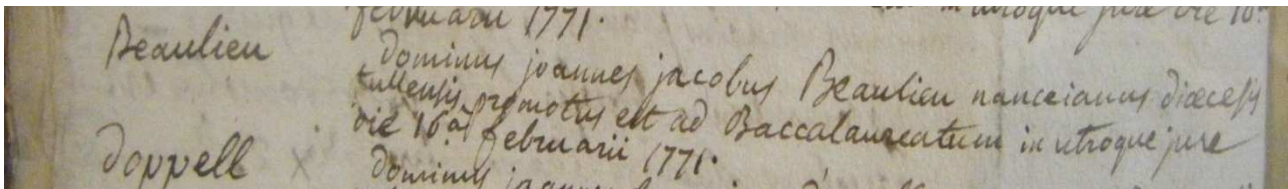 februarii 1771. in utroque jure die 16a
Beaulieu Dominus joannes jacobus Beaulieu nanceianus diœcesis
tullensis promotus est ad Baccalaureatum in utroque jure
die 16a februarii 1771.
Doppell x Dominus